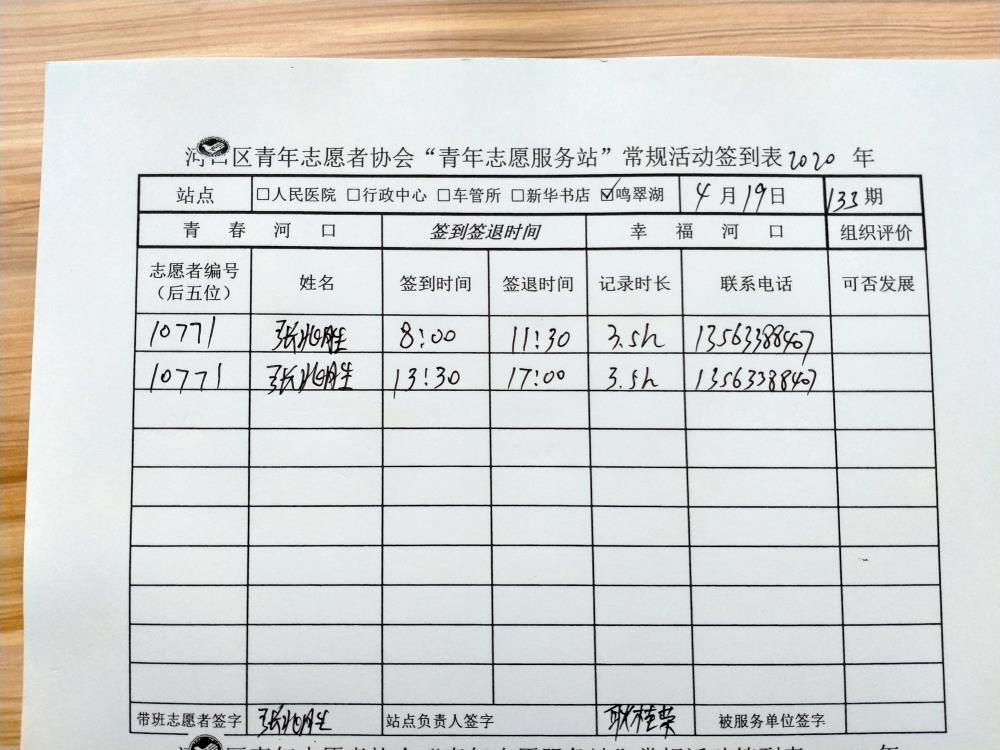 河口区青年志愿者协会“青年志愿服务站”常规活动签到表2020 年
站点 □人民医院 □行政中心 □车管所 □新华书店 ☑鸣翠湖 4月19日 133期
青春河口 签到签退时间 幸福河口 组织评价
志愿者编号（后五位） 姓名 签到时间 签退时间 记录时长 联系电话 可否发展
10771 张兆胜 8:00 11:30 3.5h 13563388407
10771 张兆胜 13:30 17:00 3.5h 13563388407
带班志愿者签字 张兆胜 站点负责人签字 耿桂荣 被服务单位签字
区青年志愿者协会“青年志愿服务站”常规活动签到表 年